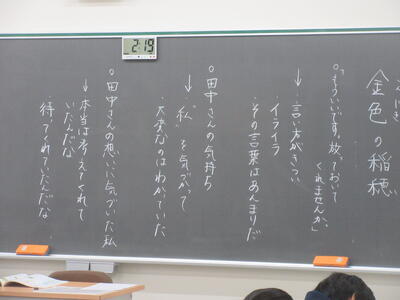 金色の稲穂
○「もういいです。放っておいて
くれませんか」
↓言い方がきつい
イライラ
その言葉はあんまりだ
○田中さんの気持ち
↓"私"を気づかって
大変なのはわかっていた
○田中さんの想いに気づいた私
↓本当は考えてくれて
いたんだな
待ってくれていたんだな
2:19